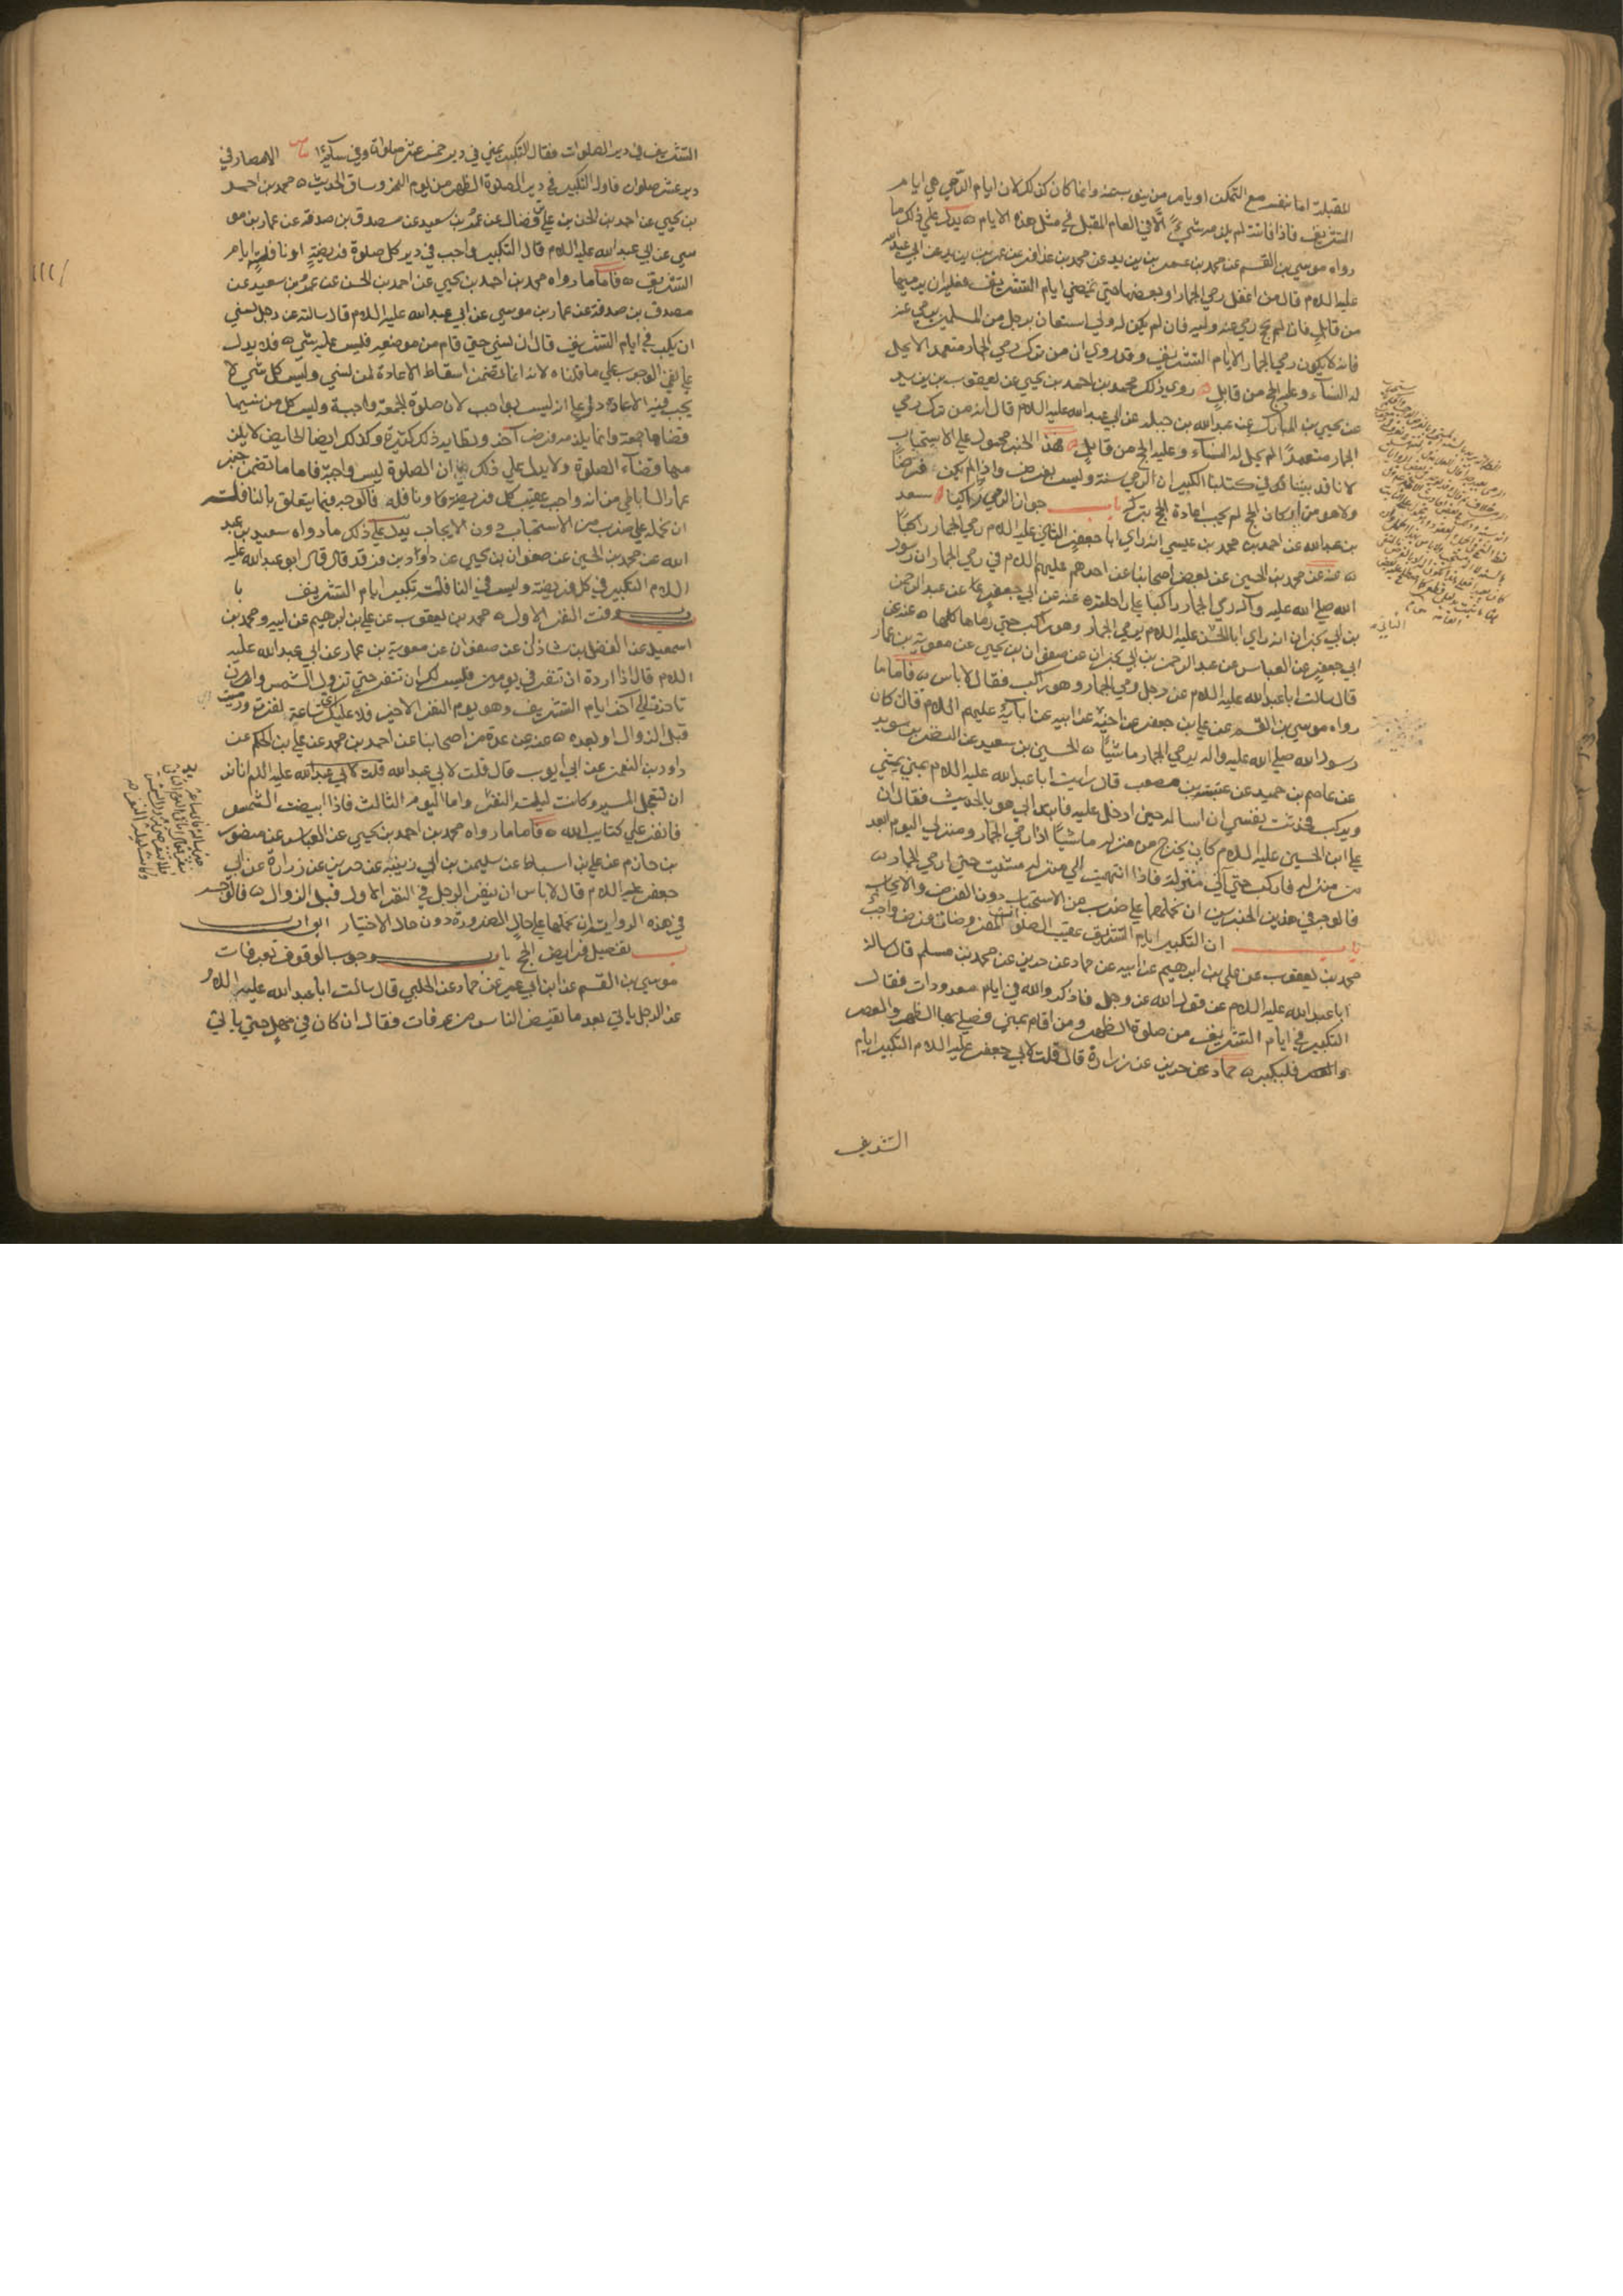 المقبلة اما بنفسه مع التمكن او يامر من ينوب عنه وانما كان كذلك لان ايام الرمي هي ايام
التشريق فاذا فاتته لم يلزمه شيء الا في العام المقبل في مثل هذه الايام ه يدل على ذلك ما
رواه موسي بن القسم عن محمد بن عمر بن يزيد عن محمد بن عذافر عن عمر بن يزيد عن ابي عبد الله
عليه السلام قال من اغفل رمي الجمار او بعضها حتي تمضي ايام التشريق فعليه ان يرميها
من قابل فان لم يحج رمي عنه وليه فان لم يكن له ولي استعان برجل من المسلمين يرمي عنه
فانه لا يكون رمي الجمار الا ايام التشريق وقد روي ان من ترك رمي الجمار متعمدا لا يحل
له النساء وعليه الحج من قابل ه روي ذلك محمد بن احمد بن يحيي عن يعقوب بن يزيد
عن يحيي بن المبارك عن عبد الله بن جبلة عن ابي عبد الله عليه السلام قال انه من ترك رمي
الجمار متعمدًا لم يحل له النساء وعليه الحج من قابل ه هذا الخبر محمول علي الاستحباب
لانا قد بينا في كتابنا الكبير ان الرمي سنة وليس بفرض واذا لم يكن فرضًا
ولا هو من اركان الحج لم يجب اعادة الحج بتركه باب جواز الرمي راكبا ه سعد
بن عبد الله عن احمد بن محمد بن عيسي انه راي ابا جعفر الثاني عليه السلام رمي الجمار راكبًا
ه عنه عن محمد بن الحسين عن بعض اصحابنا عن احدهم عليهم السلام في رمي الجمار ان رسول
الله صلي الله عليه وآله رمي الجمار راكبا علي راحلته ه عنه عن ابي جعفر عن عبد الرحمن
بن ابي نجران انه راي ابا الحسن عليه السلام يرمي الجمار وهو راكب حتي رماها كلها ه عنه عن
ابي جعفر عن العباس عن عبد الرحمن بن ابي نجران عن صفوان بن يحيي عن معوية بن عمار
قال سالت ابا عبد الله عليه السلام عن رجل رمي الجمار وهو راكب فقال لا باس ه فاما ما
رواه موسي بن القسم عن علي بن جعفر عن اخيه عن ابيه عن آبائه عليهم السلام قال كان
رسول الله صلي الله عليه واله يرمي الجمار ماشيًا ه الحسين بن سعيد عن النضر بن سويد
عن عاصم بن حميد عن عنبسة بن مصعب قال رايت ابا عبد الله عليه السلام بمني يمشي
ويركب فحدثت نفسي ان اساله حين ادخل عليه فابتداني هو بالحديث فقال ان
علي ابن الحسين عليه السلام كان يخرج من منزله ماشيًا اذا رمي الجمار ومنزلي اليوم ابعد
من منزله فاركب حتي آتي منزله فاذا انتهيت الي منزله مشيت حتي ارمي الجمار ه
فالوجه في هذين الخبرين ان نحملهما علي ضرب من الاستحباب دون الفرض والايجاب
باب ان التكبير ايام التشريق عقيب الصلوات المفروضات فرض واجب
محمد بن يعقوب عن علي بن ابرهيم عن ابيه عن حماد عن حريز عن محمد بن مسلم قال سالت
ابا عبد الله عليه السلام عن قول الله عز وجل فاذكروا الله في ايام معدودات فقال
التكبير في ايام التشريق من صلوة الظهر ومن اقام بمني فصلي بها الظهر والعصر
والعصر فليكبر ه حماد عن حريز عن زرارة قال قلت لابي جعفر عليه السلام التكبير ايام
التشريق
التشريق في دبر الصلوات فقال التكبير بمني في دبر خمس عشر صلوات وفي سائر الامصار في
دبر عشر صلوات فاول التكبير في دبر الصلوة الظهر من يوم النحر وساق الحديث ه محمد بن احمد
بن يحيي عن احمد بن الحسن بن علي بن فضال عن عمرو بن سعيد عن مصدق بن صدقة عن عمار بن مو
سي عن ابي عبد الله عليه السلام قال التكبير واجب في دبر كل صلوة فريضةٍ او نافلةٍ ايام
التشريق ه فاما ما رواه محمد بن احمد بن يحيي عن احمد بن الحسن عن عمرو بن سعيد عن
مصدق بن صدقة عن عمار بن موسي عن ابي عبد الله عليه السلام قال سالته عن رجل نسي
ان يكبر في ايام التشريق قال ان نسي حتي قام من موضعه فليس عليه شي ه فلا يدل
علي نفي الوجوب علي ما قلناه لانه انما تضمن اسقاط الاعادة لمن نسي وليس كل شي لا
يجب فيه الاعادة دل علي انه ليس بواجب لان صلوة الجمعة واجبة وليس كل من نسيها
قضاها جمعة وانما يلزمه فرض آخر ونظاير ذلك كثيرة وكذلك ايضا الحايض لا يلز
مها قضاء الصلوة ولا يدل علي ذلك ان الصلوة ليس واجبة فاما ما تضمن خبر
عمار الساباطي من انه واجب عقيب كل فريضة ونافلة فالوجه فيما يتعلق بالنافلة
ان نحمله علي ضرب من الاستحباب دون الايجاب يدل علي ذلك ما رواه سعد بن عبد
الله عن محمد بن الحسين عن صفوان بن يحيي عن داود بن فرقد قال قال ابو عبد الله عليه
السلام التكبير في كل فريضة وليس في النافلة تكبير ايام التشريق با
ب وقت النفر الاول ه محمد بن يعقوب عن علي بن ابرهيم عن ابيه ومحمد بن
اسمعيل عن الفضل بن شاذان عن صفوان عن معوية بن عمار عن ابي عبد الله عليه
السلام قال اذا اردة ان تنفر في يومين فليس لك ان تنفر حتي تزول الشمس وان
تاخرت الي آخر ايام التشريق وهو يوم النفر الاخير فلا عليك اي ساعة نفرت ورميت
قبل الزوال او بعده ه عنه عن عدة من اصحابنا عن احمد بن محمد عن علي بن الحكم عن
داود بن النعمن عن ابي ايوب قال قلت لابي عبد الله قلت لابي عبد الله عليه السلام انا نريد
ان نتعجل السير وكانت ليلة النفر واما اليوم الثالث فاذا ابيضت الشمس
فانفر علي كتاب الله ه فاما ما رواه محمد بن احمد بن يحيي عن العباس عن منصور
بن حازم عن علي بن اسباط عن سليمن بن ابي زينبة عن حريز عن زرارة عن ابي
جعفر عليه السلام قال لا باس ان ينفر الرجل في النفر الاول قبل الزوال ه فالوجه
في هذه الرواية ان نحملها علي حال الضرورة دون حال الاختيار ابواب
تفصيل فرايض الحج باب وجوب الوقوف بعرفات
موسي بن القسم عن ابن ابي عمير عن حماد عن الحلبي قال سالت ابا عبد الله عليه السلام
عن الرجل ياتي بعد ما يفيض الناس من عرفات فقال ان كان في مهل حتي ياتي